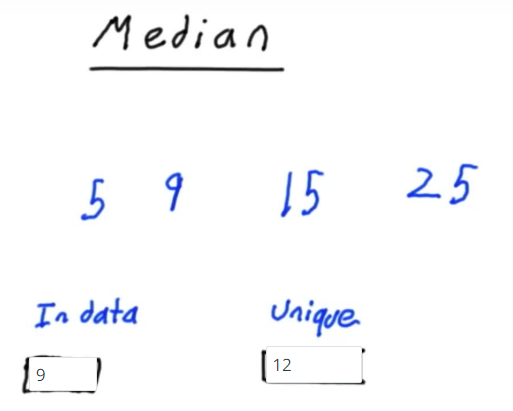 Median
5 9 15 25
In data Unique
9 12